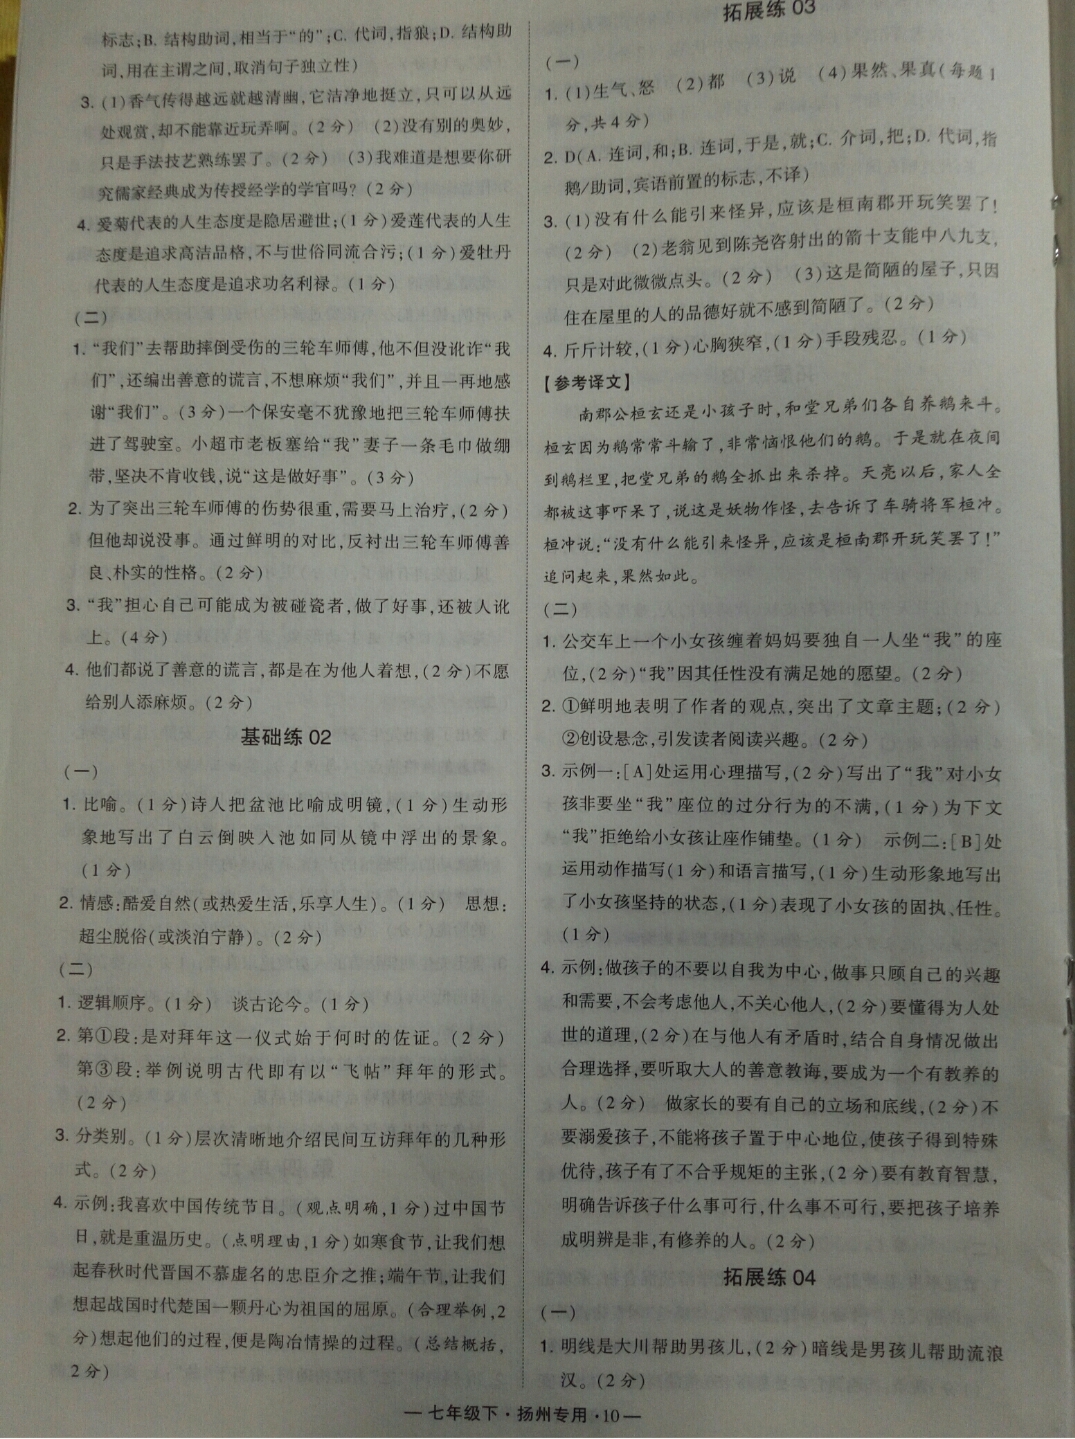 标志;B. 结构助词,相当于“的”;C. 代词,指狼;D. 结构助
词,用在主谓之间,取消句子独立性)
3. (1)香气传得越远就越清幽,它洁净地挺立,只可以从远
处观赏,却不能靠近玩弄啊。(2分) (2)没有别的奥妙,
只是手法技艺熟练罢了。(2分) (3)我难道是想要你研
究儒家经典成为传授经学的学官吗?(2分)
4. 爱菊代表的人生态度是隐居避世;(1分)爱莲代表的人生
态度是追求高洁品格,不与世俗同流合污;(1分)爱牡丹
代表的人生态度是追求功名利禄。(1分)
(二)
1. “我们”去帮助摔倒受伤的三轮车师傅,他不但没讹诈“我
们”,还编出善意的谎言,不想麻烦“我们”,并且一再地感
谢“我们”。(3分)一个保安毫不犹豫地把三轮车师傅扶
进了驾驶室。小超市老板塞给“我”妻子一条毛巾做绷
带,坚决不肯收钱,说“这是做好事”。(3分)
2. 为了突出三轮车师傅的伤势很重,需要马上治疗,(2分)
但他却说没事。通过鲜明的对比,反衬出三轮车师傅善
良、朴实的性格。(2分)
3. “我”担心自己可能成为被碰瓷者,做了好事,还被人讹
上。(4分)
4. 他们都说了善意的谎言,都是在为他人着想,(2分)不愿
给别人添麻烦。(2分)
基础练 02
(一)
1. 比喻。(1分)诗人把盆池比喻成明镜,(1分)生动形
象地写出了白云倒映入池如同从镜中浮出的景象。
(1分)
2. 情感:酷爱自然(或热爱生活,乐享人生)。(1分) 思想:
超尘脱俗(或淡泊宁静)。(2分)
(二)
1. 逻辑顺序。(1分) 谈古论今。(1分)
2. 第①段:是对拜年这一仪式始于何时的佐证。(2分)
第③段:举例说明古代即有以“飞帖”拜年的形式。
(2分)
3. 分类别。(1分)层次清晰地介绍民间互访拜年的几种形
式。(2分)
4. 示例:我喜欢中国传统节日。(观点明确,1分)过中国节
日,就是重温历史。(点明理由,1分)如寒食节,让我们想
起春秋时代晋国不慕虚名的忠臣介之推;端午节,让我们
想起战国时代楚国一颗丹心为祖国的屈原。(合理举例,2
分)想起他们的过程,便是陶冶情操的过程。(总结概括,
2分)
拓展练 03
(一)
1. (1)生气、怒 (2)都 (3)说 (4)果然、果真(每题1
分,共4分)
2. D(A. 连词,和;B. 连词,于是,就;C. 介词,把;D. 代词,指
鹅/助词,宾语前置的标志,不译)
3. (1)没有什么能引来怪异,应该是桓南郡开玩笑罢了!
(2分) (2)老翁见到陈尧咨射出的箭十支能中八九支,
只是对此微微点头。(2分) (3)这是简陋的屋子,只因
住在屋里的人的品德好就不感到简陋了。(2分)
4. 斤斤计较,(1分)心胸狭窄,(1分)手段残忍。(1分)
【参考译文】
南郡公桓玄还是小孩子时,和堂兄弟们各自养鹅来斗。
桓玄因为鹅常常斗输了,非常恼恨他们的鹅。于是就在夜间
到鹅栏里,把堂兄弟的鹅全抓出来杀掉。天亮以后,家人全
都被这事吓呆了,说这是妖物作怪,去告诉了车骑将军桓冲。
桓冲说:“没有什么能引来怪异,应该是桓南郡开玩笑罢了!”
追问起来,果然如此。
(二)
1. 公交车上一个小女孩缠着妈妈要独自一人坐“我”的座
位,(2分)“我”因其任性没有满足她的愿望。(2分)
2. ①鲜明地表明了作者的观点,突出了文章主题;(2分)
②创设悬念,引发读者阅读兴趣。(2分)
3. 示例一:[A]处运用心理描写,(2分)写出了“我”对小女
孩非要坐“我”座位的过分行为的不满,(1分)为下文
“我”拒绝给小女孩让座作铺垫。(1分) 示例二:[B]处
运用动作描写(1分)和语言描写,(1分)生动形象地写出
了小女孩坚持的状态,(1分)表现了小女孩的固执、任性。
(1分)
4. 示例:做孩子的不要以自我为中心,做事只顾自己的兴趣
和需要,不会考虑他人,不关心他人,(2分)要懂得为人处
世的道理,(2分)在与他人有矛盾时,结合自身情况做出
合理选择,要听取大人的善意教诲,要成为一个有教养的
人。(2分) 做家长的要有自己的立场和底线,(2分)不
要溺爱孩子,不能将孩子置于中心地位,使孩子得到特殊
优待,孩子有了不合乎规矩的主张,(2分)要有教育智慧,
明确告诉孩子什么事可行,什么事不可行,要把孩子培养
成明辨是非,有修养的人。(2分)
拓展练 04
(一)
1. 明线是大川帮助男孩儿,(2分)暗线是男孩儿帮助流浪
汉。(2分)
— 七年级下·扬州专用·10 —